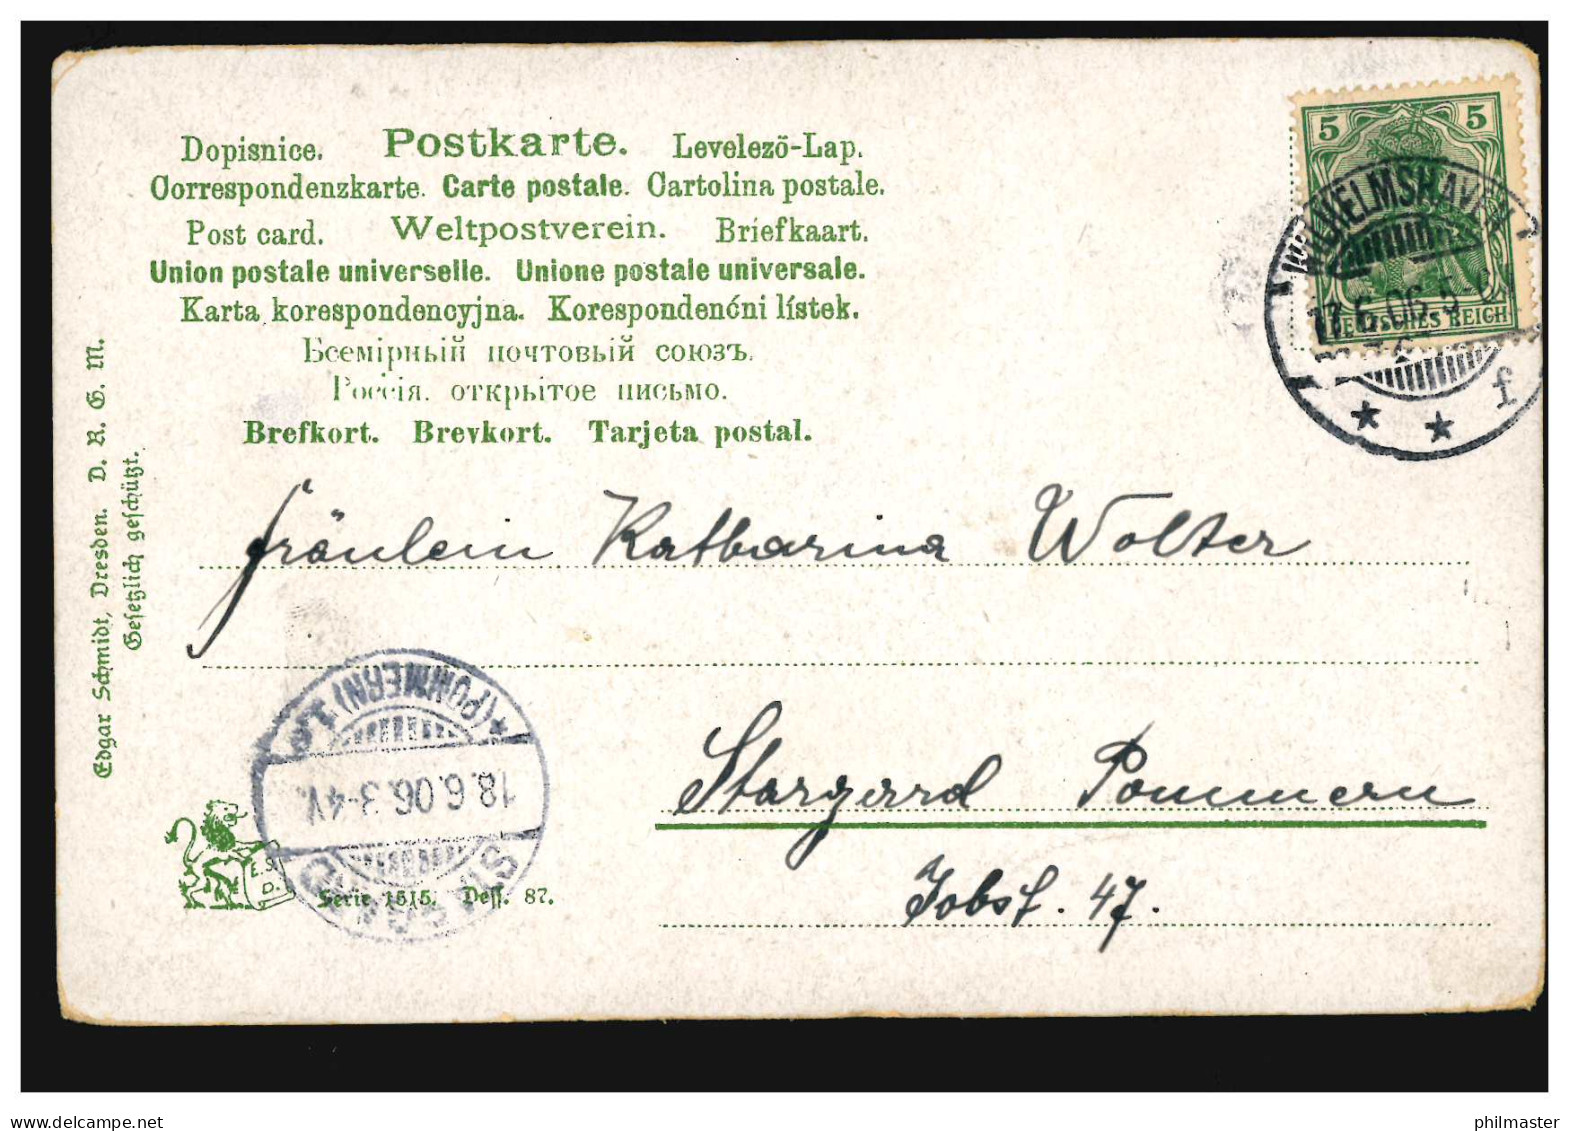 Dopisnice. Postkarte. Levelező-Lap.
Correspondenzkarte. Carte postale. Cartolina postale.
Post card. Weltpostverein. Briefkaart.
Union postale universelle. Unione postale universale.
Karta korespondencyjna. Korespondenční lístek.
Всемірный почтовый союзъ.
Россія. открытое письмо.
Brefkort. Brevkort. Tarjeta postal.
5 5
DEUTSCHES REICH
WILHELMSHAVEN
17.6.06.5-6
* * f
Edgar Schmidt, Dresden. D. R. G. M.
Gesetzlich geschützt.
Fräulein Katharina Wolter
Stargard Pommern
Jobst. 47.
STARGARD
18.6.06.3-4V.
*(POMMERN) 1e
E.S.
D.
Serie 1515. Dess. 87.
www.delcampe.net
philmaster